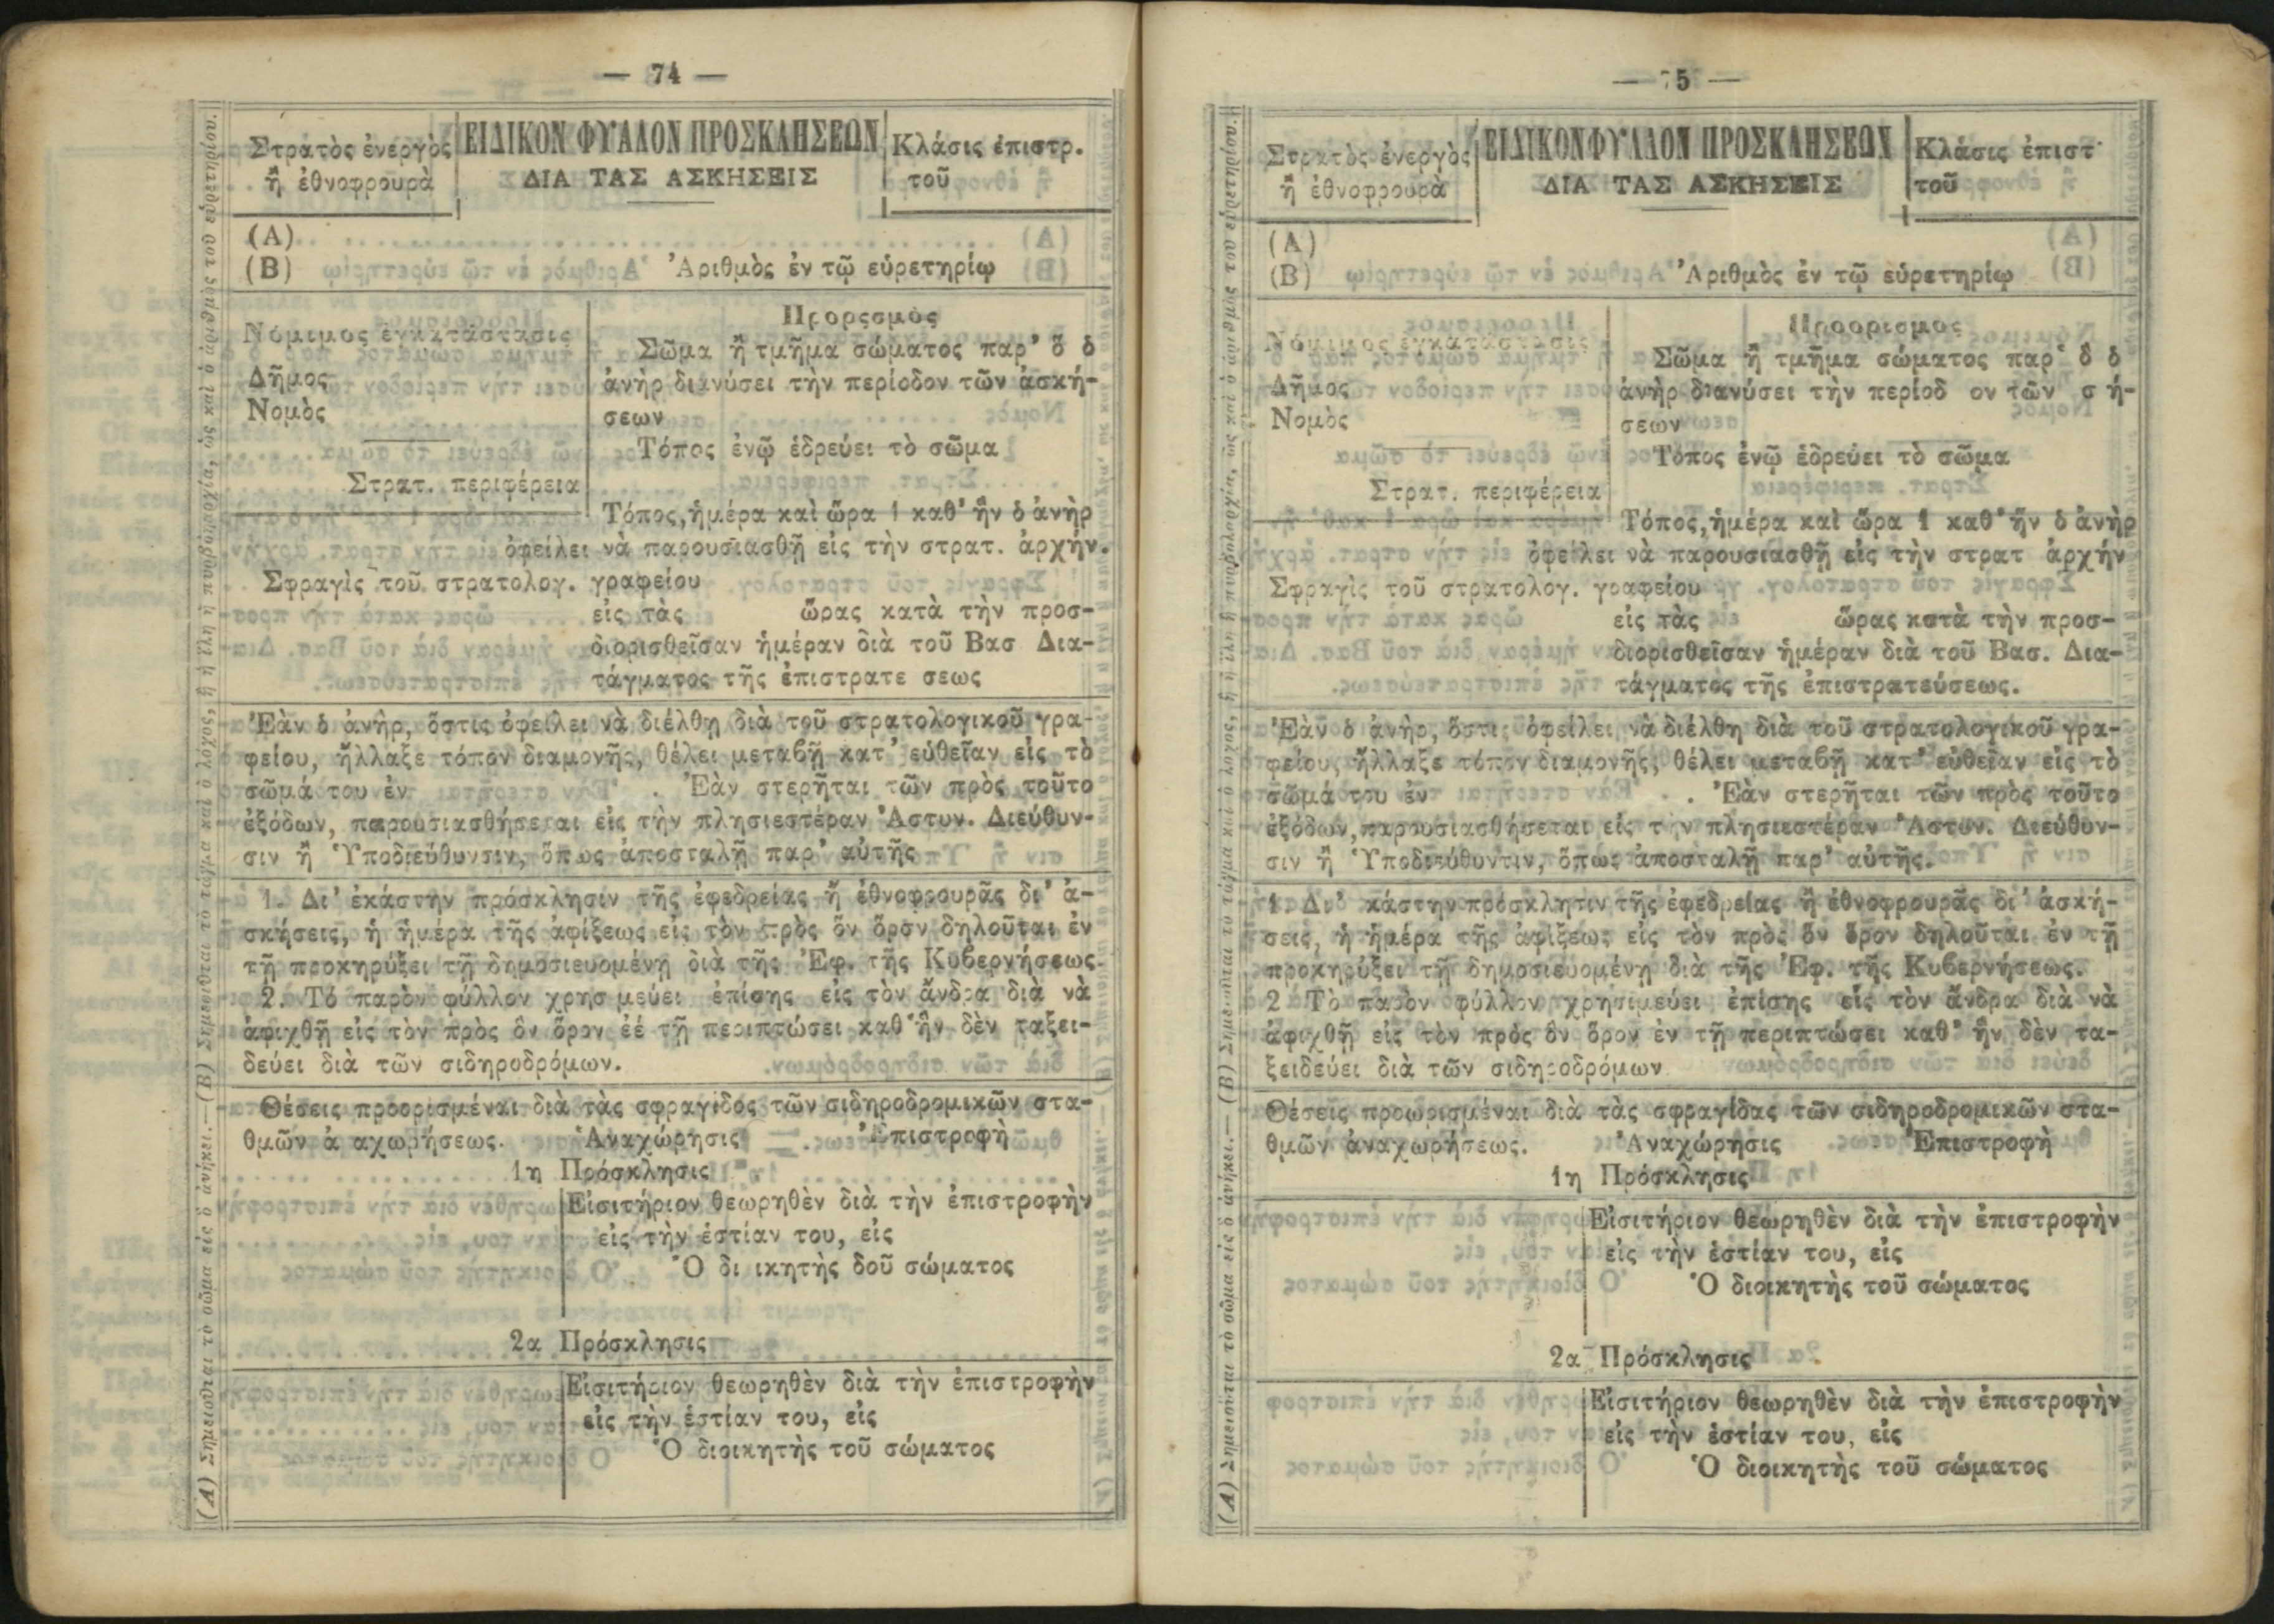 — 74 —
Στρατὸς ἐνεργὸς
ἢ ἐθνοφρουρὰ
ΕΙΔΙΚΟΝ ΦΥΛΛΟΝ ΠΡΟΣΚΛΗΣΕΩΝ
ΔΙΑ ΤΑΣ ΑΣΚΗΣΕΙΣ
Κλάσις ἐπιστρ.
τοῦ
(Α)
(Β) Ἀριθμὸς ἐν τῷ εὑρετηρίῳ
Νόμιμος ἐγκατάστασις
Δῆμος
Νομὸς
Στρατ. περιφέρεια
Προρςσμὸς
Σῶμα ἢ τμῆμα σώματος παρ’ ὅ ὁ
ἀνὴρ διανύσει τὴν περίοδον τῶν ἀσκή-
σεων
Τόπος ἐνῷ ἑδρεύει τὸ σῶμα
Τόπος, ἡμέρα καὶ ὥρα 1 καθ’ ἣν ὁ ἀνὴρ
ὀφείλει νὰ παρουσιασθῇ εἰς τὴν στρατ. ἀρχήν.
Σφραγὶς τοῦ στρατολογ. γραφείου
εἰς τὰς ὥρας κατὰ τὴν προσ-
διορισθεῖσαν ἡμέραν διὰ τοῦ Βασ Δια-
τάγματος τῆς ἐπιστρατε σεως
Ἐὰν ὁ ἀνὴρ, ὅστις ὀφείλει νὰ διέλθῃ διὰ τοῦ στρατολογικοῦ γρα-
φείου, ἤλλαξε τόπον διαμονῆς, θέλει μεταβῇ κατ’ εὐθεῖαν εἰς τὸ
σῶμά του ἐν . Ἐὰν στερῆται τῶν πρὸς τοῦτο
ἐξόδων, παρουσιασθήσεται εἰς τὴν πλησιεστέραν Ἀστυν. Διεύθυν-
σιν ἢ Ὑποδιεύθυνσιν, ὅπως ἀποσταλῇ παρ’ αὐτῆς
1. Δι’ ἑκάστην πρόσκλησιν τῆς ἐφεδρείας ἢ ἐθνοφρουρᾶς δι’ ἀ-
σκήσεις, ἡ ἡμέρα τῆς ἀφίξεως εἰς τὸν πρὸς ὃν ὅρον δηλοῦται ἐν
τῇ προκηρύξει τῇ δημοσιευομένῃ διὰ τῆς Ἐφ. τῆς Κυβερνήσεως
2. Τό παρὸν φύλλον χρησ μεύει ἐπίσης εἰς τὸν ἄνδρα διὰ νὰ
ἀφιχθῇ εἰς τὸν πρὸς ὃν ὅρον ἐέ τῇ περιπτώσει καθ’ ἣν δὲν ταξει-
δεύει διὰ τῶν σιδηροδρόμων.
Θέσεις προορισμέναι διὰ τὰς σφραγίδος τῶν σιδηροδρομικῶν στα-
θμῶν ἀ αχωρήσεως. Ἀναχώρησις Ἐπιστροφὴ
1η Πρόσκλησις
Εἰσιτήριον θεωρηθὲν διὰ τὴν ἐπιστροφὴν
εἰς τὴν ἑστίαν του, εἰς
Ὁ δι ικητὴς δοῦ σώματος
2α Πρόσκλησις
Εἰσιτήριον θεωρηθὲν διὰ τὴν ἐπιστροφὴν
εἰς τὴν ἑστίαν του, εἰς
Ὁ διοικητὴς τοῦ σώματος
(Α) Σημειοῦται τὸ σῶμα εἰς ὃ ἀνήκει.—(Β) Σημειοῦται τὸ τάγμα καὶ ὁ λόχος, ἢ ἡ ἴλη ἢ πυροβολαρχία, ὡς καὶ ὁ ἀριθμὸς τοῦ εὑρετηρίου.
— 75 —
Στρατὸς ἐνεργὸς
ἢ ἐθνοφρουρὰ
ΕΙΔΙΚΟΝ ΦΥΛΛΟΝ ΠΡΟΣΚΛΗΣΕΩΝ
ΔΙΑ ΤΑΣ ΑΣΚΗΣΕΙΣ
Κλάσις ἐπιστ
τοῦ
(Α)
(Β) Ἀριθμὸς ἐν τῷ εὑρετηρίῳ
Νόμιμος ἐγκατάστασις
Δῆμος
Νομὸς
Στρατ. περιφέρεια
Προορισμος
Σῶμα ἢ τμῆμα σώματος παρ’ ὃ ὁ
ἀνὴρ διανύσει τὴν περίοδ ον τῶν σ ή-
σεων
Τόπος ἐνῷ ἑδρεύει τὸ σῶμα
Τόπος, ἡμέρα καὶ ὥρα 1 καθ’ ἣν ὁ ἀνὴρ
ὀφείλει νὰ παρουσιασθῇ εἰς τὴν στρατ ἀρχήν
Σφραγὶς τοῦ στρατολογ. γραφείου
εἰς τὰς ὥρας κατὰ τὴν προσ-
διορισθεῖσαν ἡμέραν διὰ τοῦ Βασ. Δια-
τάγματος τῆς ἐπιστρατεύσεως.
Ἐὰν ὁ ἀνὴρ, ὅστις ὀφείλει νὰ διέλθη διὰ τοῦ στρατολογικοῦ γρα-
φείου, ἤλλαξε τόπον διαμονῆς, θέλει μεταβῇ κατ’ εὐθεῖαν εἰς τὸ
σῶμά του ἐν . Ἐὰν στερῆται τῶν πρὸς τοῦτο
ἐξόδων, παρουσιασθήσεται εἰς τ ν πλησιεστέραν Ἀστυν. Διεύθυν-
σιν ἢ Ὑποδιεύθυντιν, ὅπως ἀποσταλῇ παρ’ αὐτῆς.
1. Δι’ κάστην πρόσκλητιν τῆς ἐφεδρείας ἢ ἐθνοφρουρᾶς δι’ ἀσκή-
σεις, ἡ ἡμέρα τῆς ἀφίξεως εἰς τὸν πρὸς ὃν ὅρον δηλοῦται ἐν τῇ
προκηρύξει τῇ δημοσιευομένῃ διὰ τῆς Ἐφ. τῆς Κυβερνήσεως.
2 Τὸ παρὸν φύλλον χρησιμεύει ἐπίσης εἰς τὸν ἄνδρα διὰ νὰ
ἀφιχθῇ εἰς τὸν πρὸς ὃν ὅρον ἐν τῇ περιπτώσει καθ’ ἣν δὲν τα-
ξειδεύει διὰ τῶν σιδηροδρόμων
Θέσεις προωρισμέναι διὰ τὰς σφραγίδας τῶν σιδηροδρομικῶν στα-
θμῶν ἀναχωρήσεως. Ἀναχώρησις Ἐπιστροφὴ
1η Πρόσκλησις
Εἰσιτήριον θεωρηθὲν διὰ τὴν ἐπιστροφὴν
εἰς τὴν ἑστίαν του, εἰς
Ὁ διοικητὴς τοῦ σώματος
2α Πρόσκλησις
Εἰσιτήριον θεωρηθὲν διὰ τὴν ἐπιστροφὴν
εἰς τὴν ἑστίαν του, εἰς
Ὁ διοικητὴς τοῦ σώματος
(Α) Σημειοῦται τὸ σῶμα εἰς ὃ ἀνήκει.—(Β) Σημειοῦται τὸ τάγμα καὶ ὁ λόχος, ἢ ἡ ἴλη ἢ πυροβολαρχία, ὡς καὶ ὁ ἀριθμὸς τοῦ εὑρετηρίου.